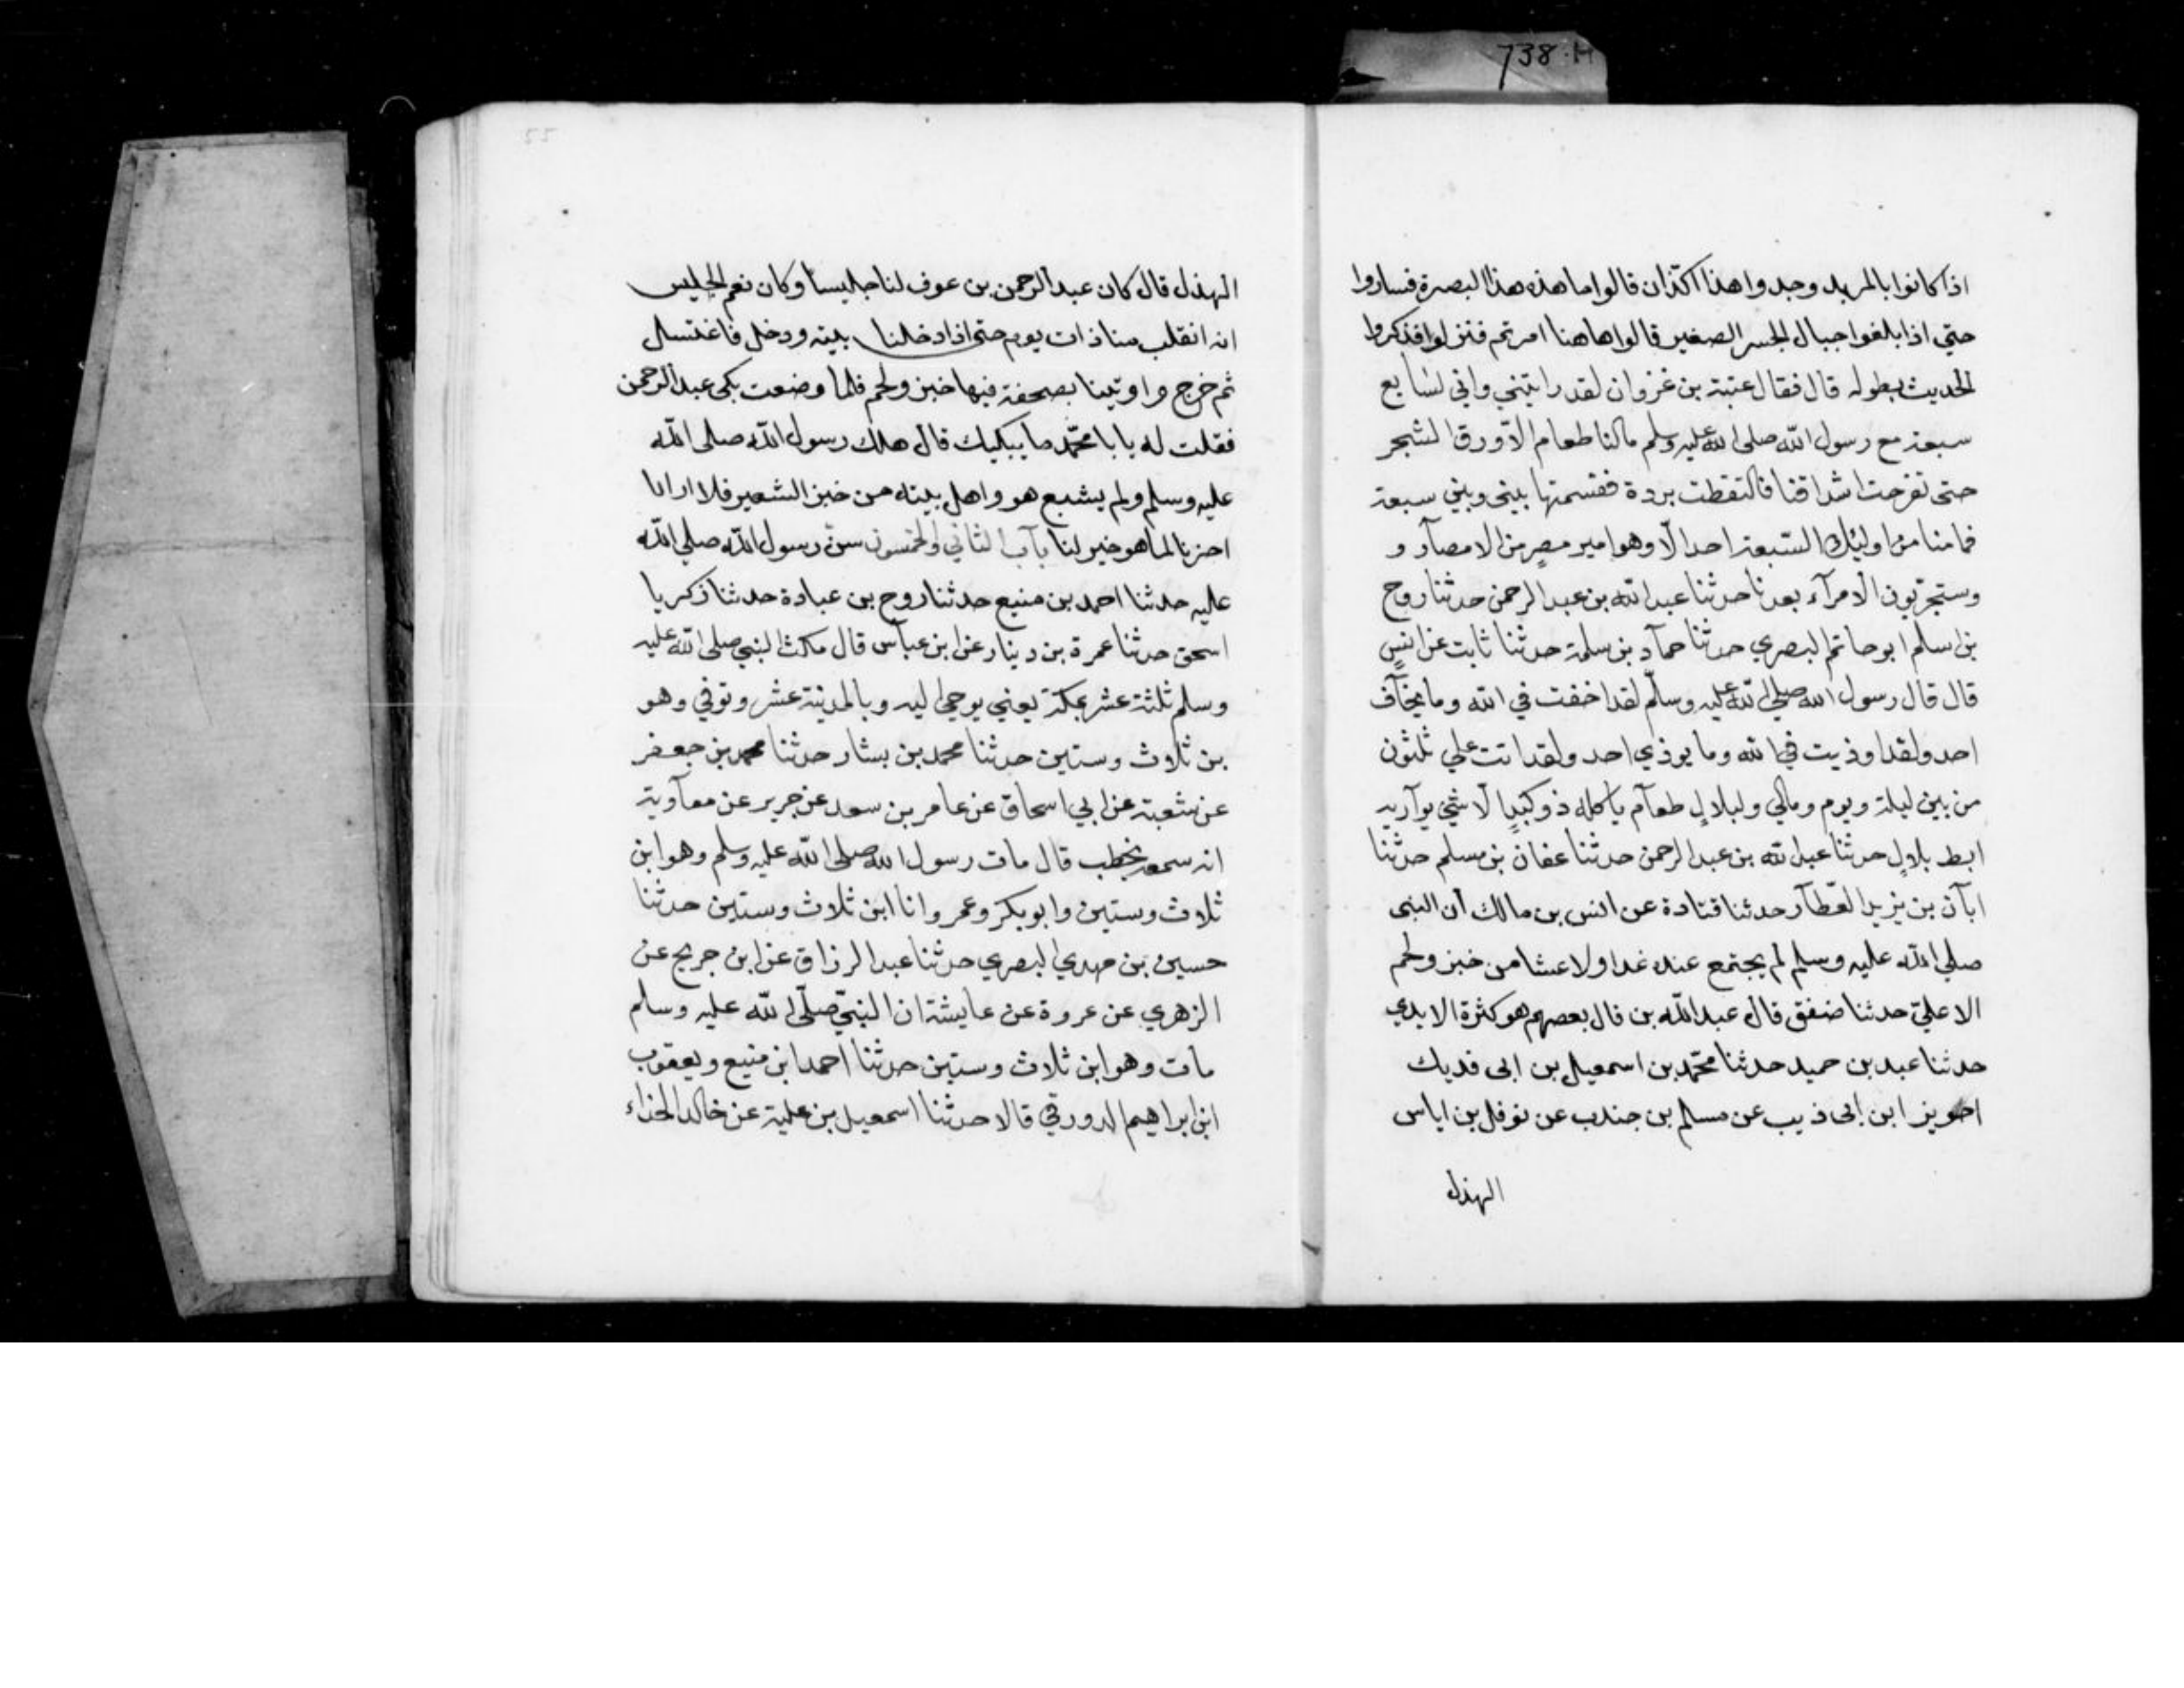 738.H
اذا كانوا بالمربد وجدوا هذا الكذان قالوا ما هذه هذا البصرة فساروا
حتي اذا بلغوا حبال الجسر الصغير قالوا هاهنا امرتم فنزلوا فذكروا
الحديث بطوله قال فقال عتبة بن غزوان لقد رايتني واني لسابع
سبعة مع رسول الله صلى الله عليه وسلم مالنا طعام الّا ورق الشجر
حتى تقرحت اشداقنا فالتقطت بردة فقسمتها بيني وبين سبعة
فما منا من اوليك السّبعة احد الّا وهو امير مصرٍ من الامصار و
وستجرّبون الامرآء بعدنا حدثنا عبد الله بن عبد الرحمن حدثنا روح
بن اسلم ابو حاتم البصري حدثنا حمآد بن سلمة حدثنا ثابت عن انسٍ
قال قال رسول الله صلي الله عليه وسلّم لقد اخفت في الله وما يخآف
احد ولقد اوذيت في الله وما يوذي احد ولقد اتت علي ثلثون
من بين ليلة ويوم ومالي ولبلالٍ طعآم ياكله ذو كبدٍ الّا شي يوآريه
ابط بلالٍ حدثنا عبد الله بن عبد الرحمن حدثنا عفان بن مسلم حدثنا
ابآن بن يزيد العطّآر حدثنا قتادة عن انس بن مالك ان النبى
صلي الله عليه وسلم لم يجتمع عنده غدا ولا عشا من خبز ولحم
الا علىّ حدثنا ضفق قال عبد الله بن قال بعصهم هو كثرة الايدي
حدثنا عبد بن حميد حدثنا محمّد بن اسمعيل بن ابى فديك
ابن ابى ذيب عن مسلم بن جندب عن نوفل بن اياس
الهذل
55
الهذل قال كان عبد الرحمن بن عوف لنا جليسا وكان نعم الجليس
انه انقلب منا ذات يوم حتى اذا دخلنا بيته ودخل فاغتسل
ثم خرج واوتينا بصحفة فيها خبز ولحم فلما وضعت بكى عبد الرحمن
فقلت له يابا محمّد ما يبكيك قال هلك رسول الله صلى الله
عليه وسلم ولم يشبع هو واهل بيته من خبز الشعير فلا ارانا
اخرنا لما هو خير لنا بآب الثاني والخمسون سن رسول الله صلي الله
عليه حدثنا احمد بن منيع حدثنا روح بن عبادة حدثنا زكريا
اسحق حدثنا عمرة بن دينار عن ابن عباس قال مكث النبي صلى الله عليه
وسلم ثلثة عشر بمكة يعني يوحي اليه وبالمدينة عشر وتوفي وهو
بن ثلاث وستين حدثنا محمد بن بشار حدثنا محمد بن جعفر
عن شعبة عن ابي اسحاق عن عامر بن سعد عن جرير عن معآوية
انه سمعه يخطب قال مات رسول الله صلى الله عليه وسلم وهو ابن
ثلاث وستين وابو بكر وعمر وانا ابن ثلاث وستين حدثنا
حسين بن مهدي البصري حدثنا عبد الرزاق عن ابن جريج عن
الزهري عن عروة عن عايشة ان النبيّ صلّى الله عليه وسلم
مات وهو ابن ثلاث وستين حدثنا احمد ابن منيع ويعقوب
ابن ابراهيم الدورقي قالا حدثنا اسمعيل بن علية عن خالد الحذاء